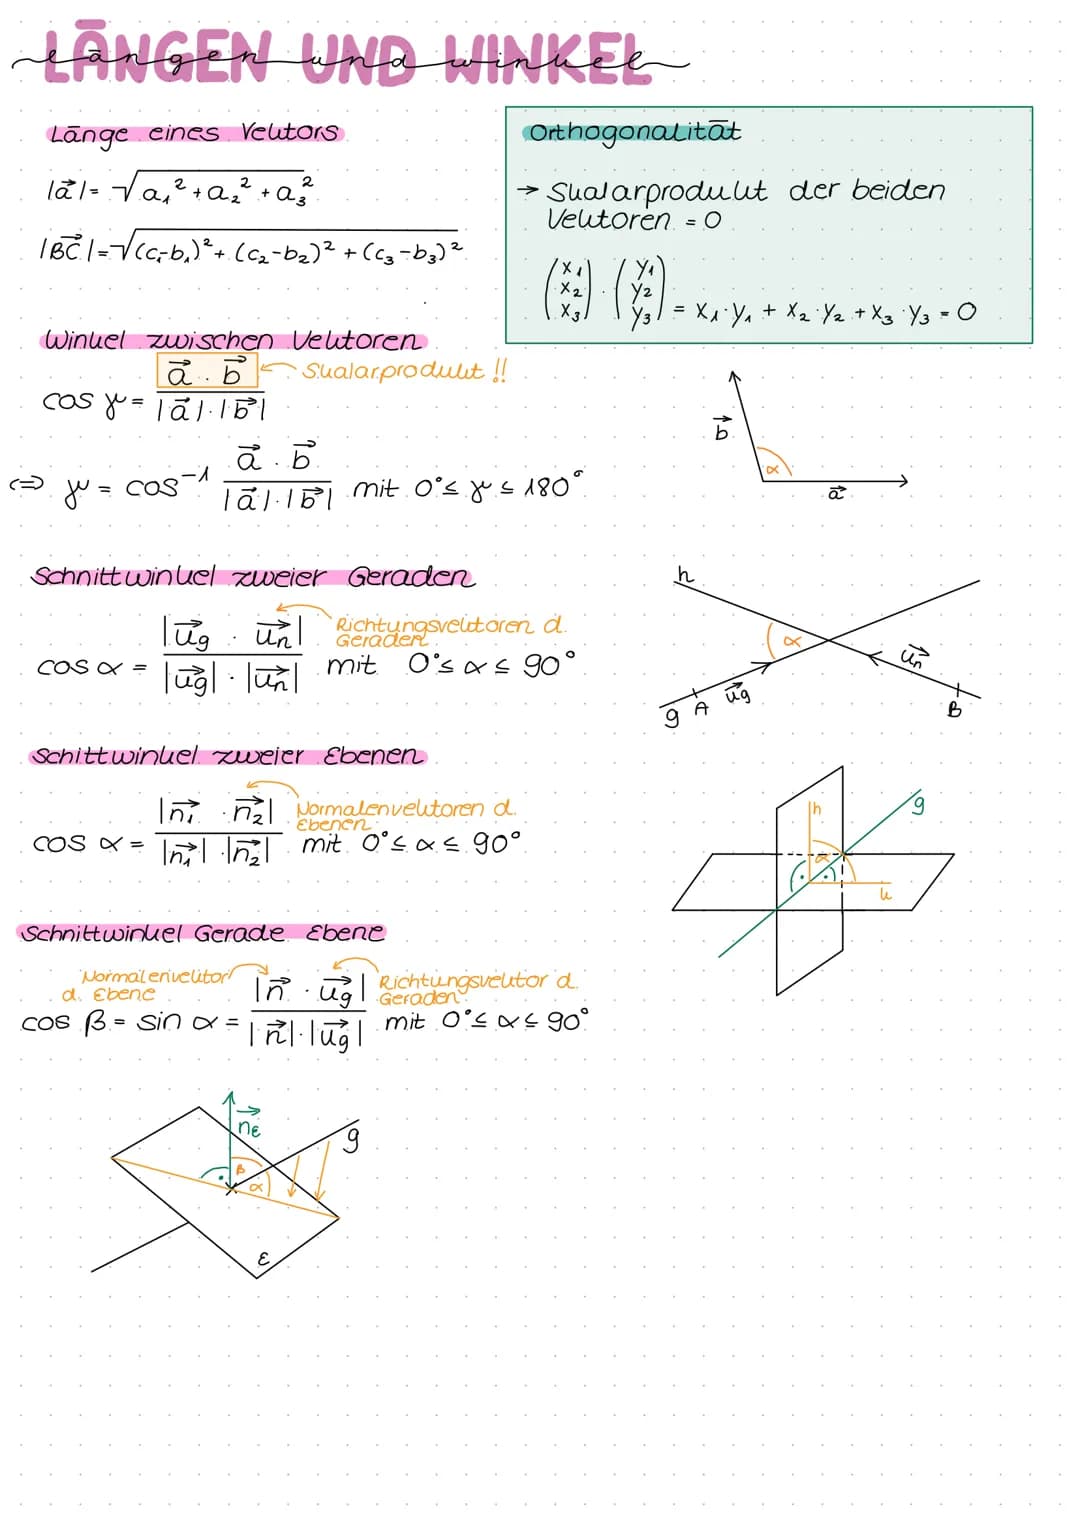 LÄNGEN UND WINKEL
längen und winkel
Länge eines Vektors
|a⃗| = √a₁² + a₂² + a₃²
|BC⃗| = √(c₁-b₁)² + (c₂-b₂)² + (c₃-b₃)²
Orthogonalität
→ Skalarprodukt der beiden
Vektoren = 0
(x₁ x₂ x₃) · (y₁ y₂ y₃) = x₁·y₁ + x₂·y₂ + x₃·y₃ = 0
Winkel zwischen Vektoren
cos γ = a⃗ · b⃗ / |a⃗|·|b⃗| ← Skalarprodukt !!
⇔ γ = cos⁻¹ a⃗ · b⃗ / |a⃗|·|b⃗| mit 0°≤ γ ≤ 180°
b⃗
α
a⃗
Schnittwinkel zweier Geraden
Richtungsvektoren d.
Geraden
cos α = |u⃗g · u⃗h| / |u⃗g| · |u⃗h| mit 0°≤ α ≤ 90°
h
α
u⃗h
u⃗g
g A
B
Schittwinkel zweier Ebenen
Normalenvektoren d.
Ebenen
cos α = |n⃗₁ · n⃗₂| / |n⃗₁| · |n⃗₂| mit 0°≤ α ≤ 90°
h
g
α
k
Schnittwinkel Gerade Ebene
Normalenvektor
d. Ebene
Richtungsvektor d.
Geraden
cos β = sin α = |n⃗ · u⃗g| / |n⃗|·|u⃗g| mit 0°≤ α ≤ 90°
n⃗ε
g
β
α
ε